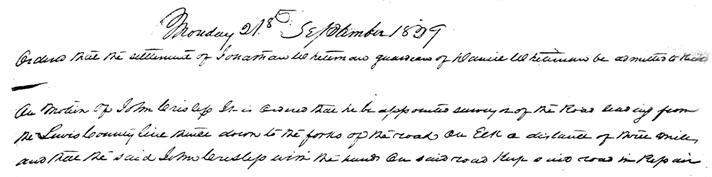 Monday 21st September 1829
Ordered that the settlement of Jonathan Whetsman guardian of Daniel Whetsman be admitted to Record
On Motion of John Crislip It is ordered that he be appointed surveyor of the Road leading from
the Lewis County line thence down to the forks of the road on Elk a distance of three miles
and that the said John Crislip with the hands on said road Keep said road in Repair